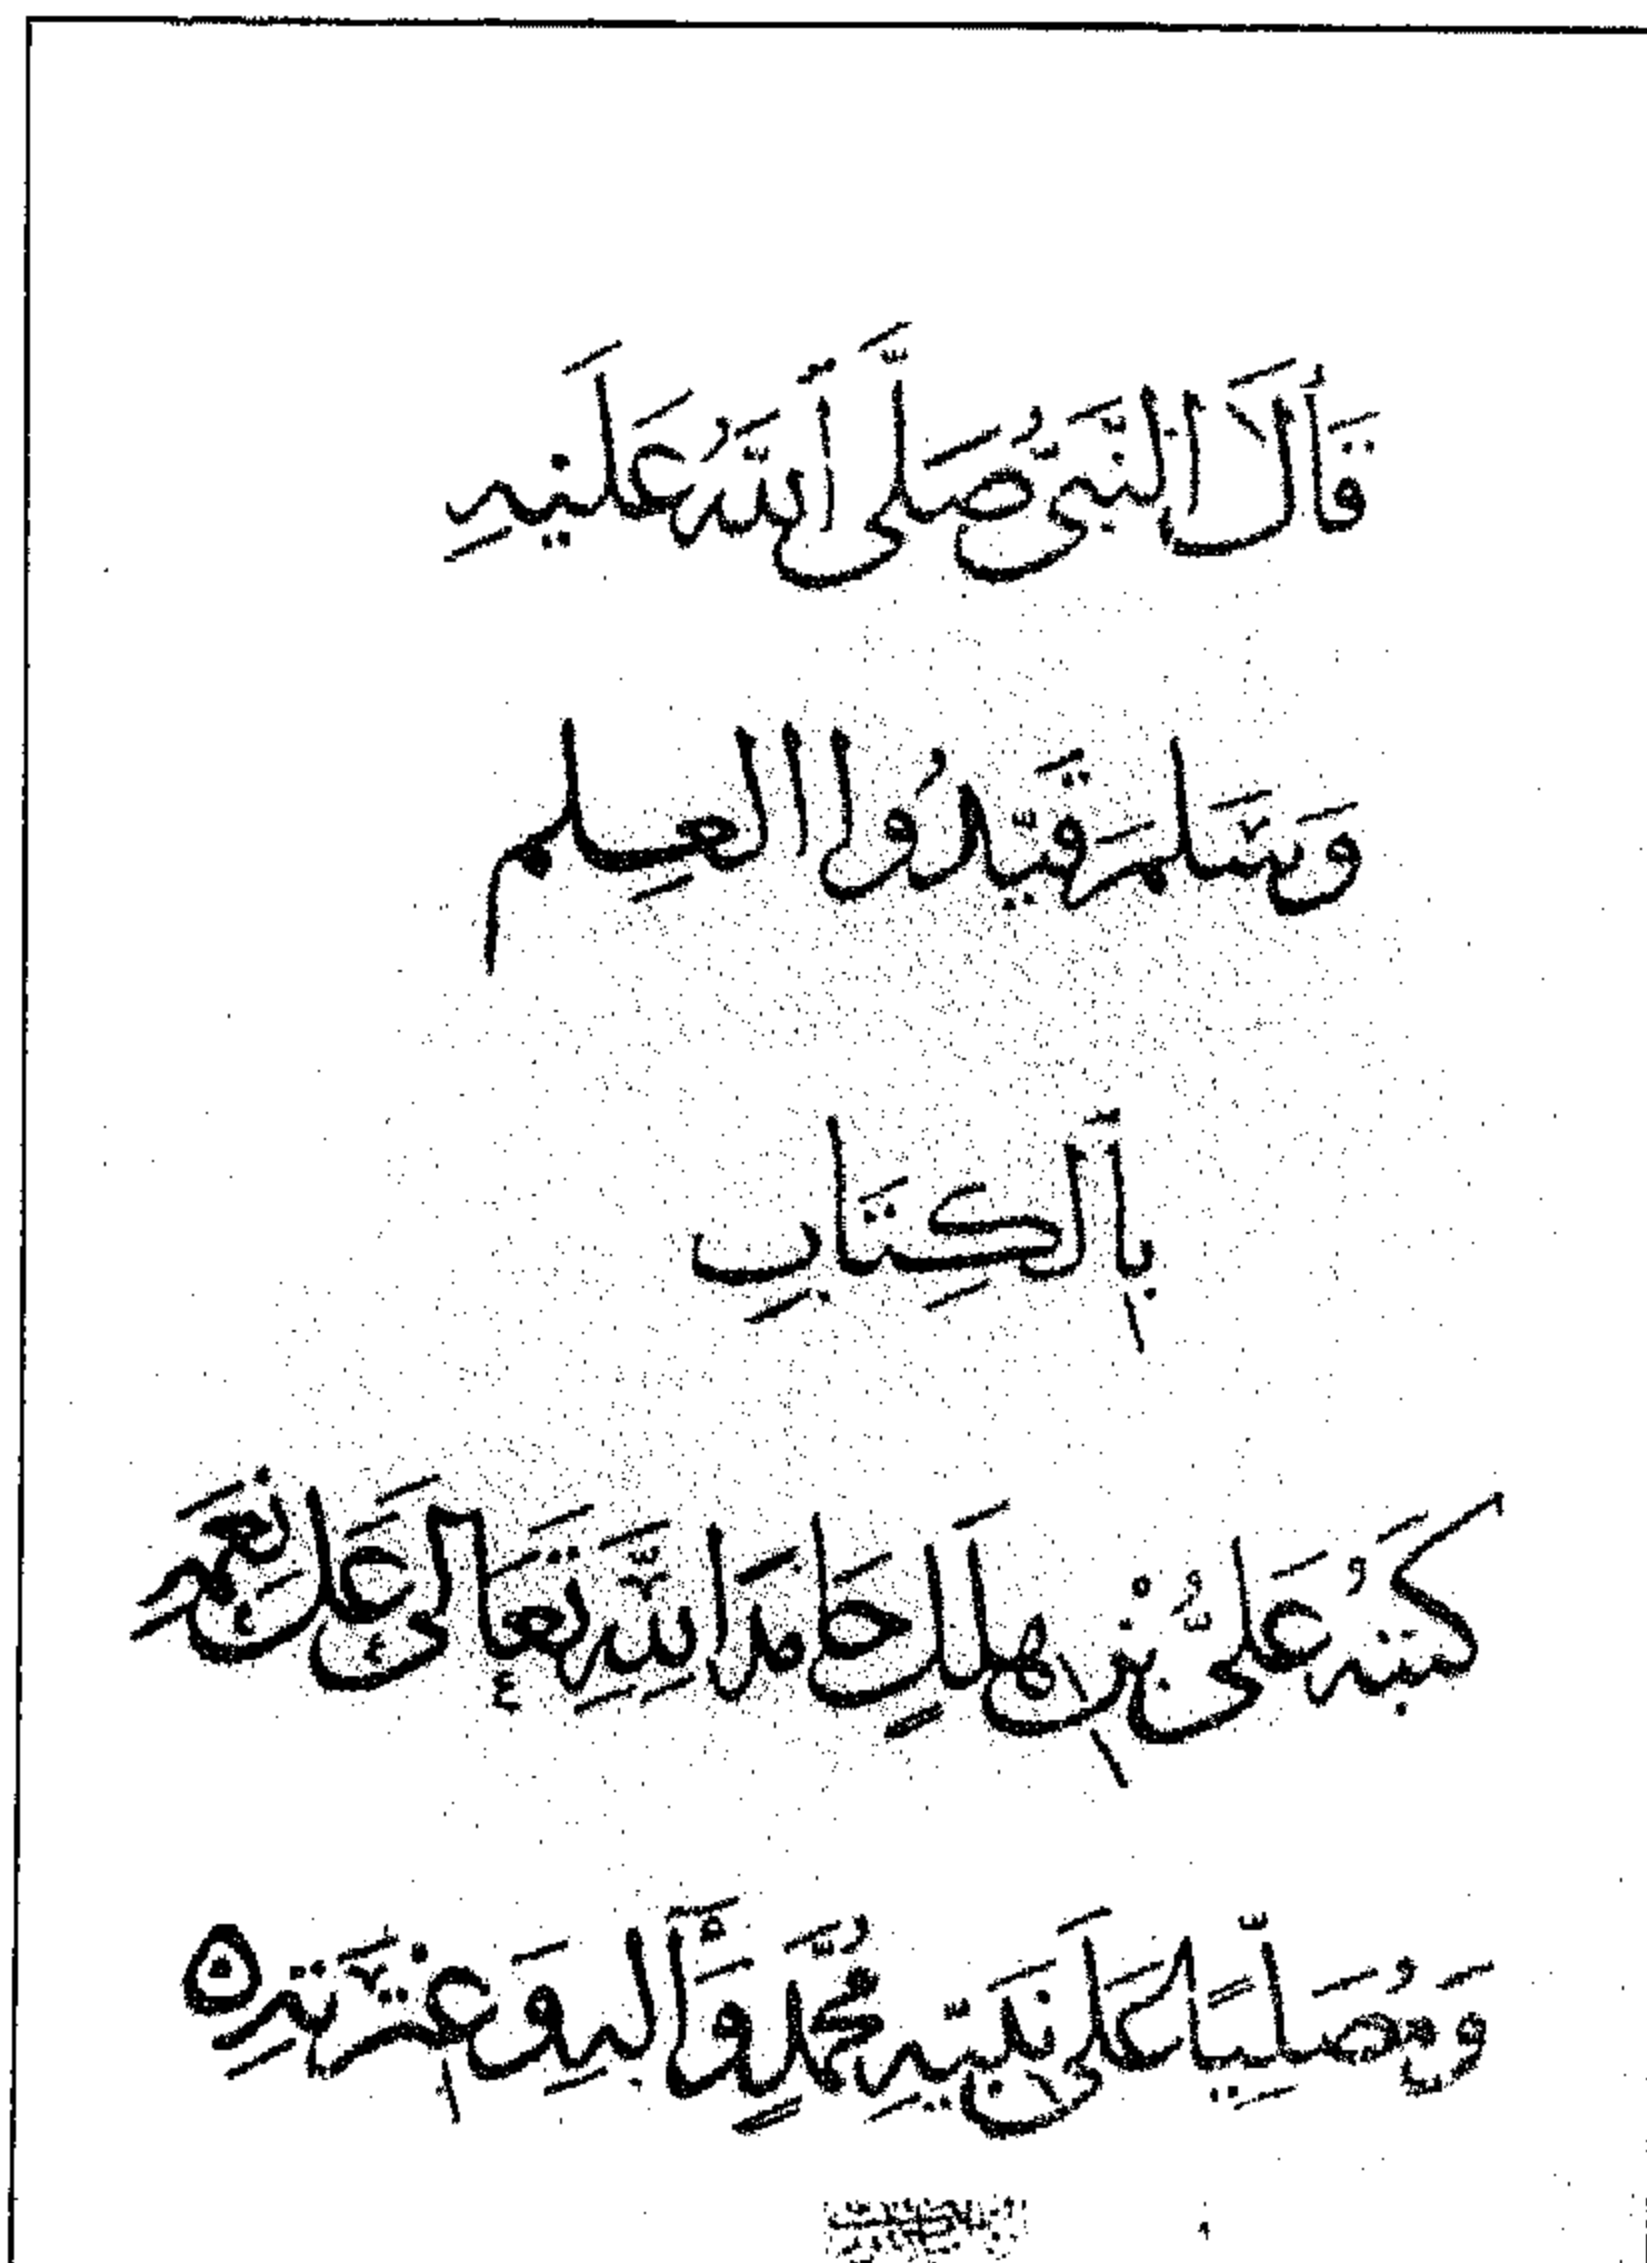 قَالَ النَّبِيُّ صَلَّى اللَّهُ عَلَيْهِ
وَسَلَّمَ قَيِّدُوا العِلم
بِالكِتَابِ
كَتَبَهُ عَلِيُّ بْنُ هِلَالٍ حَامِدًا لِلَّهِ تَعَالَى عَلَى نِعَمِهِ
وَمُصَلِّيًا عَلَى نَبِيِّهِ مُحَمَّدٍ وَآلِهِ وَعِتْرَتِهِ